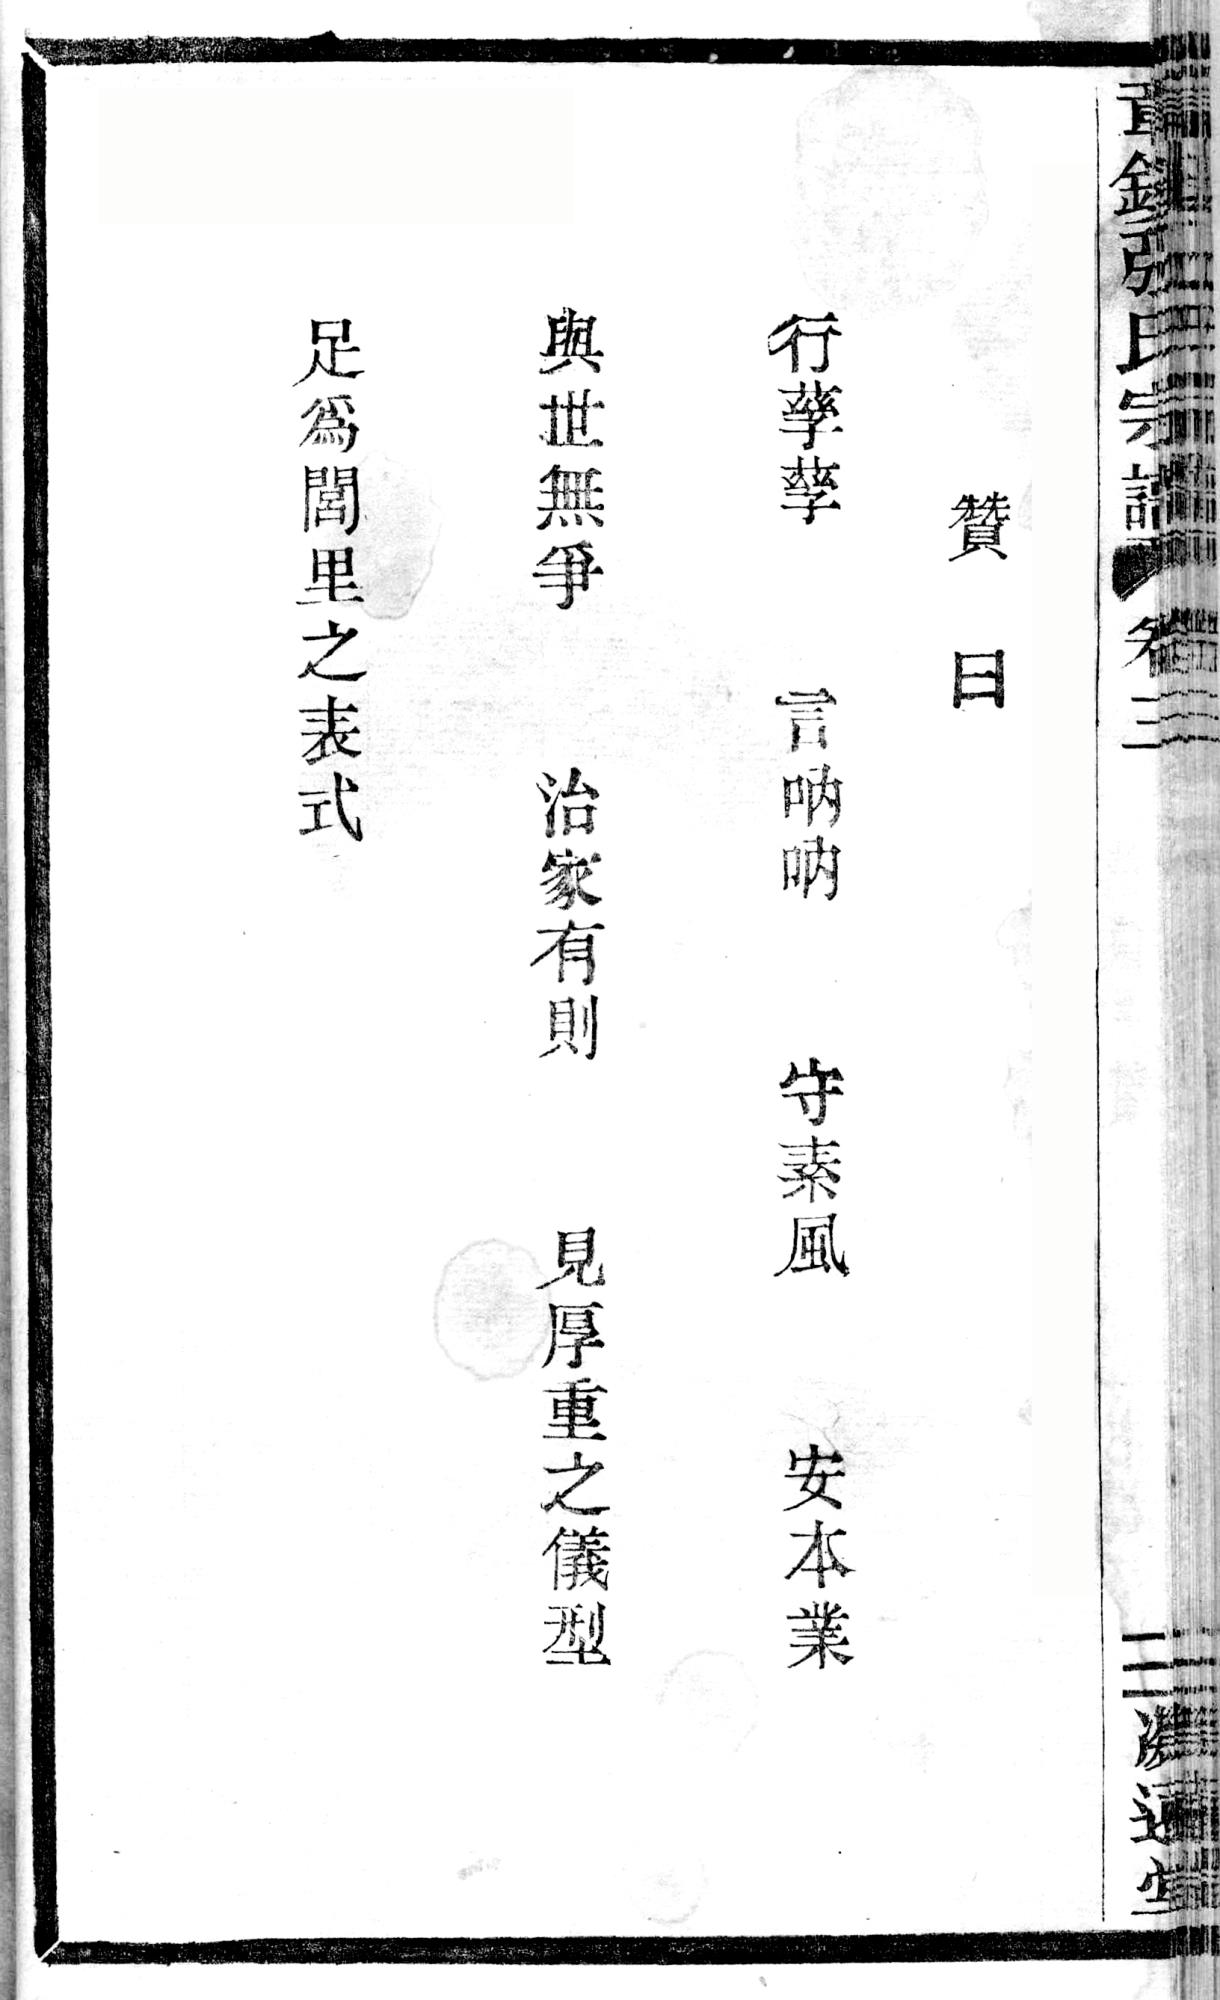 張氏宗譜 卷三
贊曰
行孳孳 言吶吶 守素風 安本業
與世無爭 治家有則 見厚重之儀型
足爲閭里之表式